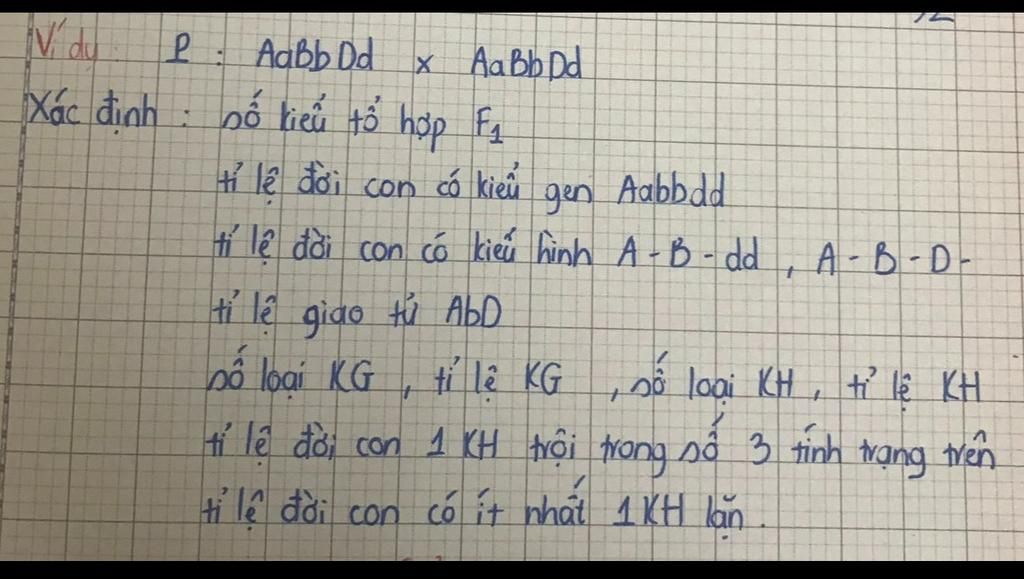 Ví dụ: P : AaBbDd x AaBbDd
Xác định : số kiểu tổ hợp F1
tỉ lệ đời con có kiểu gen Aabbdd
tỉ lệ đời con có kiểu hình A-B-dd, A-B-D-
tỉ lệ giao tử AbD
số loại KG, tỉ lệ KG, số loại KH, tỉ lệ KH
tỉ lệ đời con 1 KH trội trong số 3 tính trạng trên
tỉ lệ đời con có ít nhất 1 KH lặn.